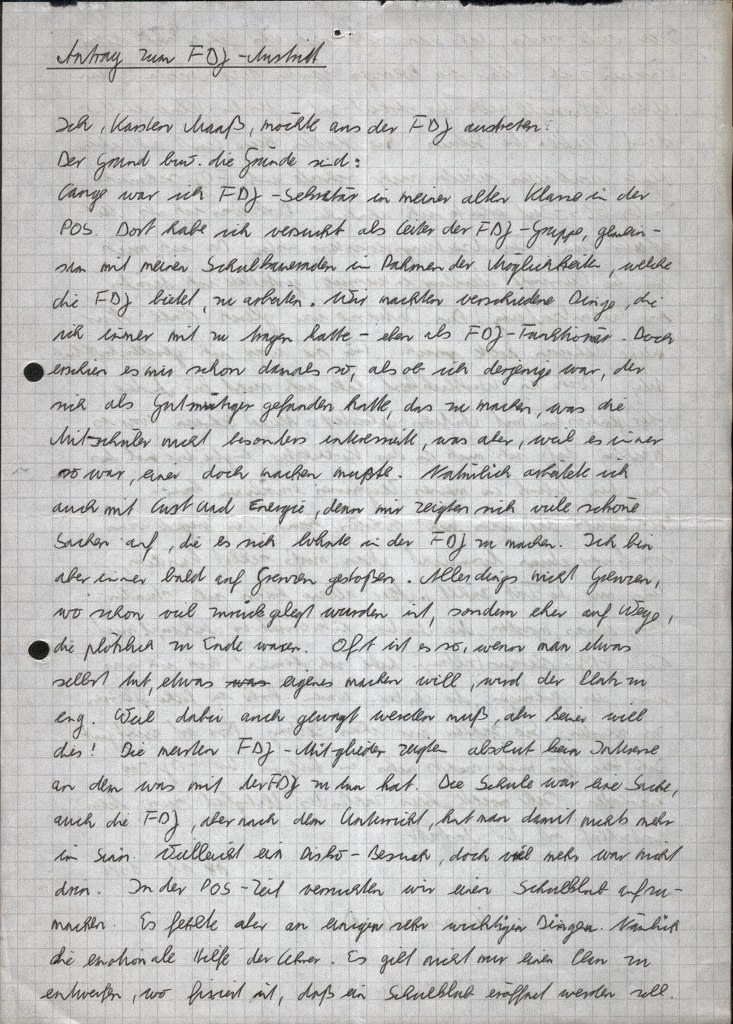 Antrag zum FDJ-Austritt
Ich, Karsten Maaß, möchte aus der FDJ austreten.
Der Grund bzw. die Gründe sind:
Lange war ich FDJ-Sekretär in meiner alten Klasse in der
POS. Dort habe ich versucht als Leiter der FDJ-Gruppe, gemein-
sam mit meinen Schulkameraden im Rahmen der Möglichkeiten, welche
die FDJ bietet, zu arbeiten. Wir machten verschiedene Dinge, die
ich immer mit zu tragen hatte – eben als FDJ-Funktionär. Doch
erschien es mir schon damals so, als ob ich derjenige war, der
sich als Gutmütiger gefunden hatte, das zu machen, was die
Mitschüler nicht besonders interessierte, was aber, weil es immer
so war, einer doch machen mußte. Natürlich arbeitete ich
auch mit Lust und Energie, denn mir zeigten sich viele schöne
Sachen auf, die es sich lohnte in der FDJ zu machen. Ich bin
aber immer bald auf Grenzen gestoßen. Allerdings nicht Grenzen,
wo schon viel zurückgelegt wurden ist, sondern eher auf Wege,
die plötzlich zu Ende waren. Oft ist es so, wenn man etwas
selbst tut, etwas eigenes machen will, wird der Platz zu
eng. Weil dabei auch gewagt werden muß, aber keiner will
dies! Die meisten FDJ-Mitglieder zeigten absolut kein Interesse
an dem was mit der FDJ zu tun hat. Die Schule war eine Sache,
auch die FDJ, aber nach dem Unterricht, hat man damit nichts mehr
im Sinn. Vielleicht ein Disko-Besuch, doch viel mehr war nicht
drin. In der POS-Zeit versuchten wir einen Schulklub aufzu-
machen. Es fehlte aber an einigen sehr wichtigen Dingen. Nämlich
die emotionale Hilfe der Lehrer. Es gilt nicht nur einen Plan zu
entwerfen, wo fixiert ist, daß ein Schulklub eröffnet werden soll.